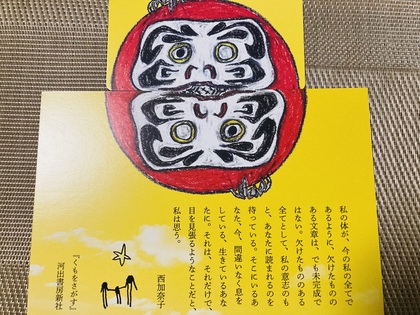 私の体が、今の私の全てで
あるように、欠けたものの
ある文章は、でも未完成で
はない。欠けたもののある
全てとして、私の意志のも
と、あなたに読まれるのを
待っている。そこにいるあ
なた、今、間違いなく息を
している、生きているあな
たに。それは、それだけで、
目を見張るようなことだと、
私は思う。
西加奈子
『くもをさがす』
河出書房新社